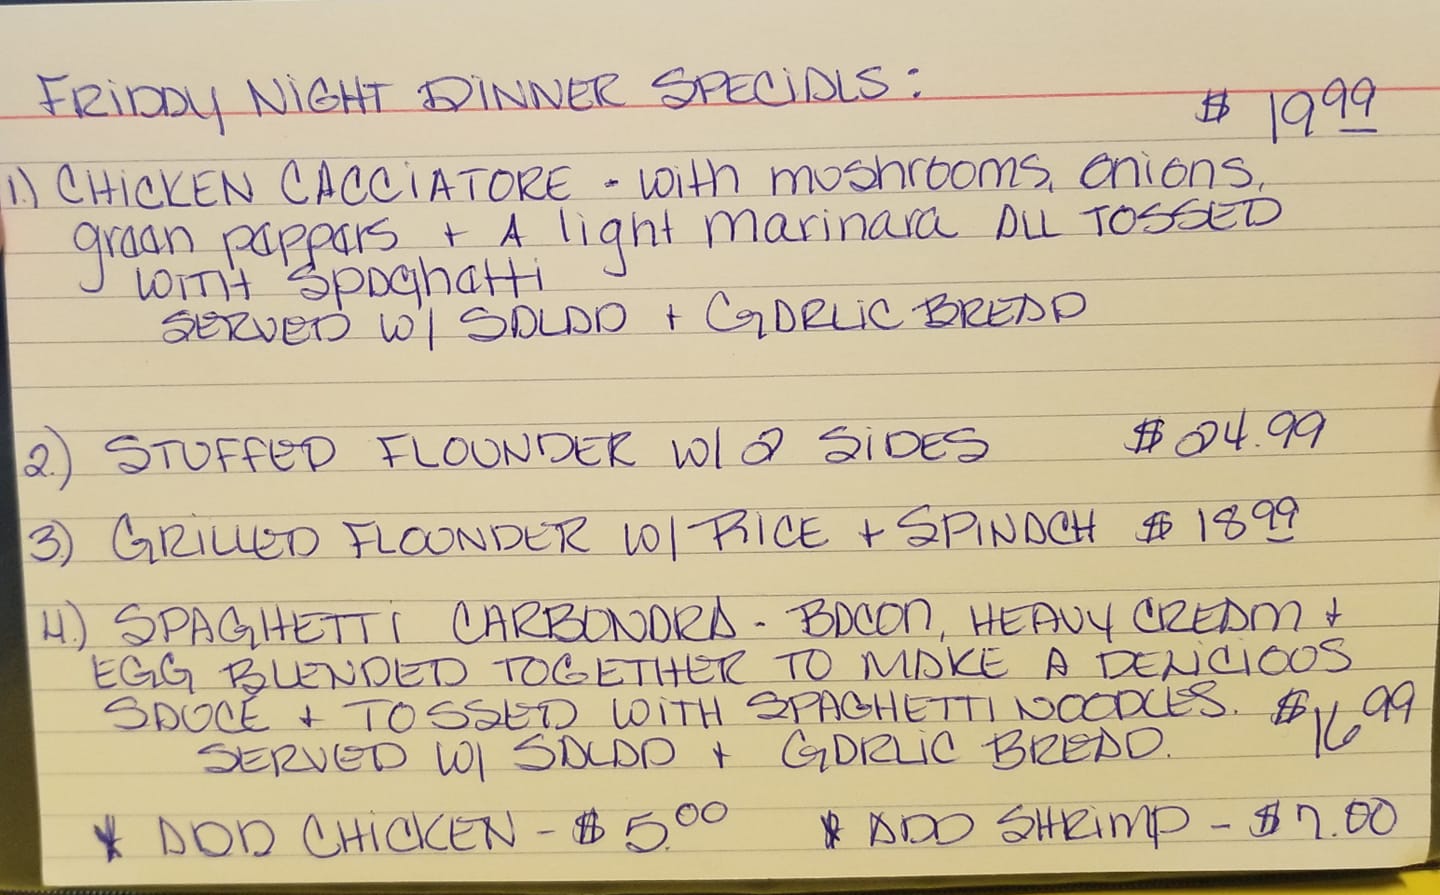 FRIDAY NIGHT DINNER SPECIALS:
$ 19.99
1.) CHICKEN CACCIATORE - with mushrooms, onions,
green peppers + A light marinara ALL TOSSED
WITH Spaghetti
SERVED W/ SALAD + GARLIC BREAD
2.) STUFFED FLOUNDER W/ 2 SIDES $ 24.99
3.) GRILLED FLOUNDER W/ RICE + SPINACH $ 18.99
4.) SPAGHETTI CARBONORA - BACON, HEAVY CREAM +
EGG BLENDED TOGETHER TO MAKE A DELICIOUS
SAUCE + TOSSED WITH SPAGHETTI NOODLES. $16.99
SERVED W/ SALAD + GARLIC BREAD.
* ADD CHICKEN - $ 5.00 * ADD SHRIMP - $ 7.00